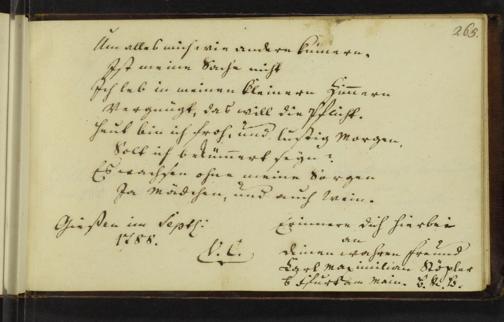 265.
Um alles mich wie andere kümern,
Ist meine Sache nicht
Ich leb in meinen kleinern Zimern
Vergnügt, das will die Pflicht.
Heut bin ich froh, und lustig Morgen,
Solt ich bekümert seyn?
Es wachsen ohne meine Sorgen
Ja Mädchen, und auch Wein.
Giesen im Septb:
1788.
V. C.
Erinnere dich hierbei
an
deinen wahren Freund
Carl Maximilian
Frfurt am Main.